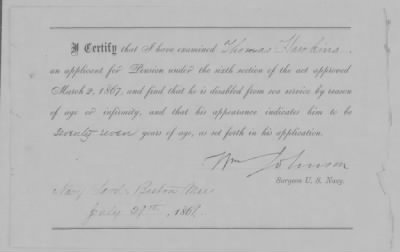 I Certify that I have examined Thomas Hawkins
an applicant for Pension under the sixth section of the act approved
March 2, 1867, and find that he is disabled from sea service by reason
of age or infirmity, and that his appearance indicates him to be
seventy seven years of age, as set forth in his application.
Wm Johnson
Surgeon U. S. Navy.
Navy Yard Boston Mass
July 29th, 1867.